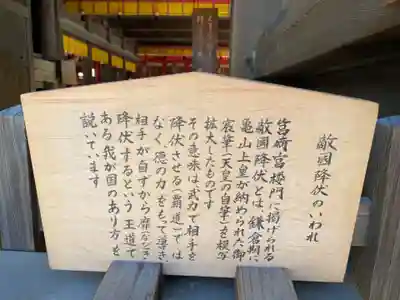 敵國降伏のいわれ
筥崎宮楼門に掲げられる
敵國降伏とは、鎌倉期に
亀山上皇が納められた御
宸筆（天皇の自筆）を模写
拡大したものです
その意味は武力で相手を
降伏させる（覇道）では
なく、徳の力をもって導き
相手が自ずから靡（なび）き
降伏するという王道で
ある我が国のあり方を
説いています